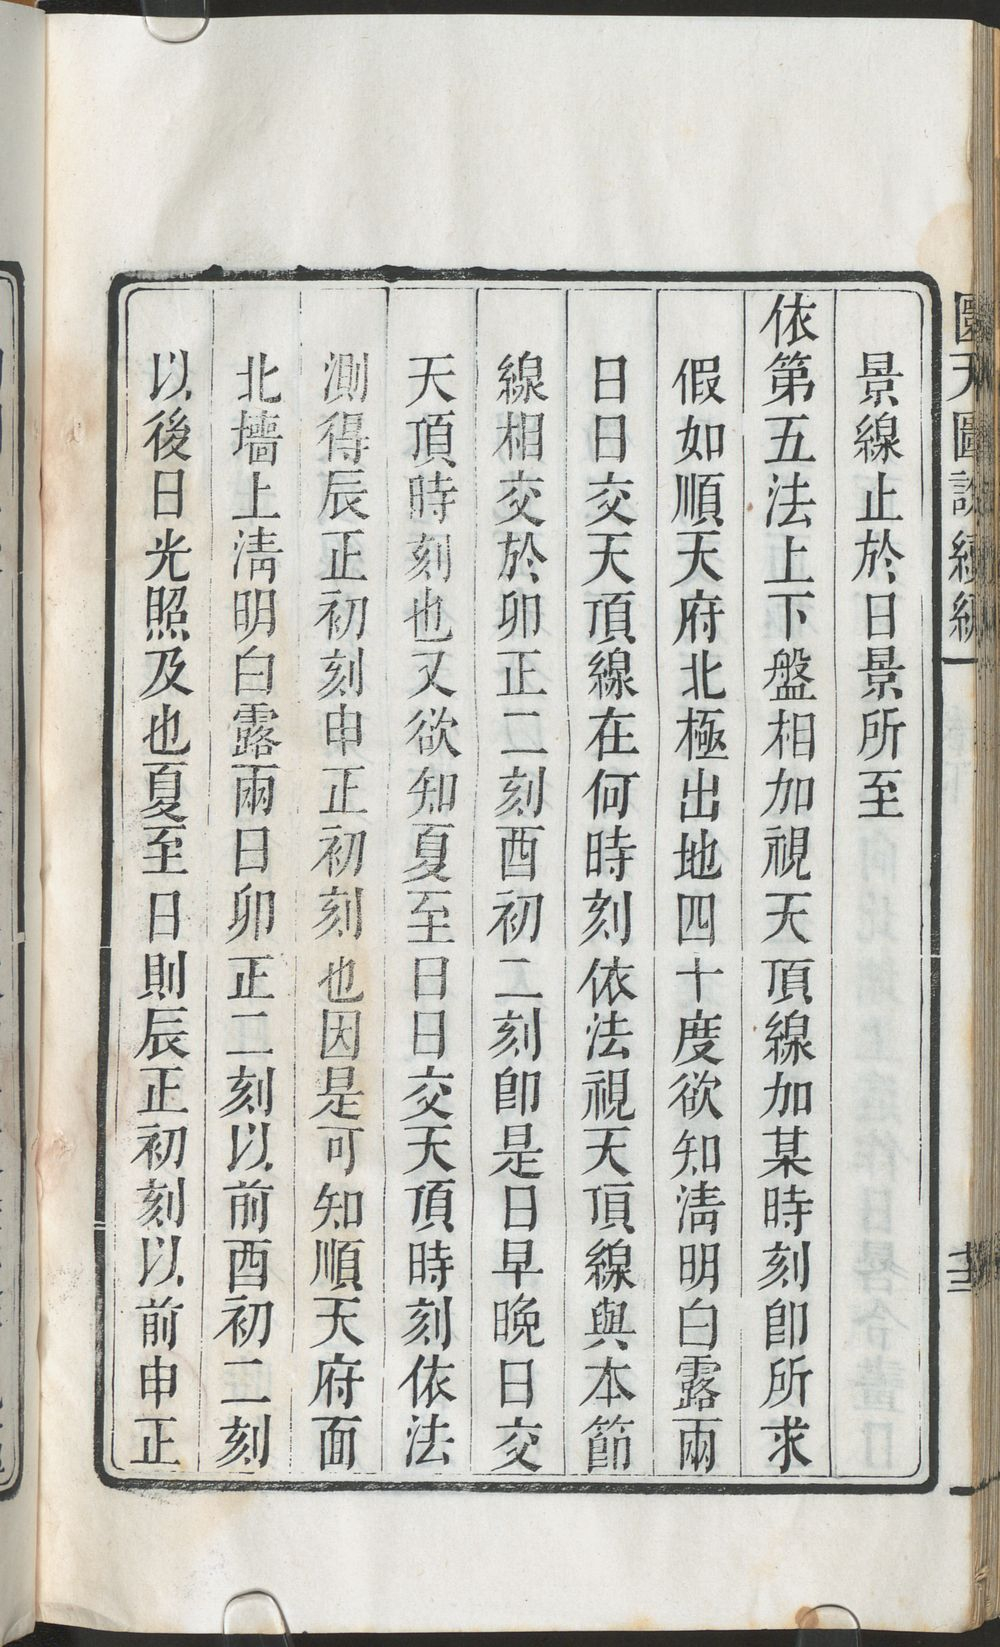 景線止於日景所至
依第五法上下盤相加視天頂線加某時刻卽所求
假如順天府北極出地四十度欲知淸明白露兩
日日交天頂線在何時刻依法視天頂線與本節
線相交於卯正二刻酉初二刻卽是日早晚日交
天頂時刻也又欲知夏至日日交天頂時刻依法
測得辰正初刻申正初刻也因是可知順天府面
北墻上淸明白露兩日卯正二刻以前酉初二刻
以後日光照及也夏至日則辰正初刻以前申正